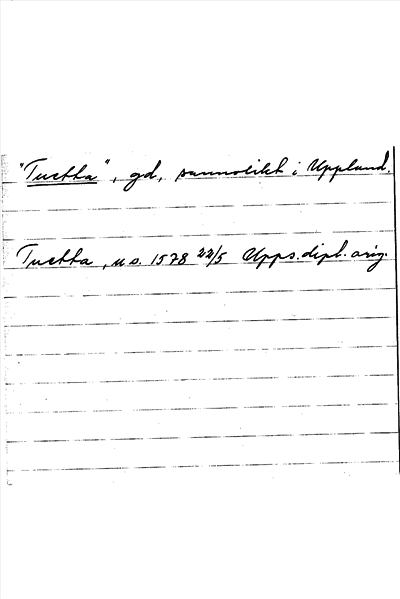 "Tuctha", gd, sannolikt i Uppland.
Tuctha, u o. 1578 22/5 Upps. dipl. orig.